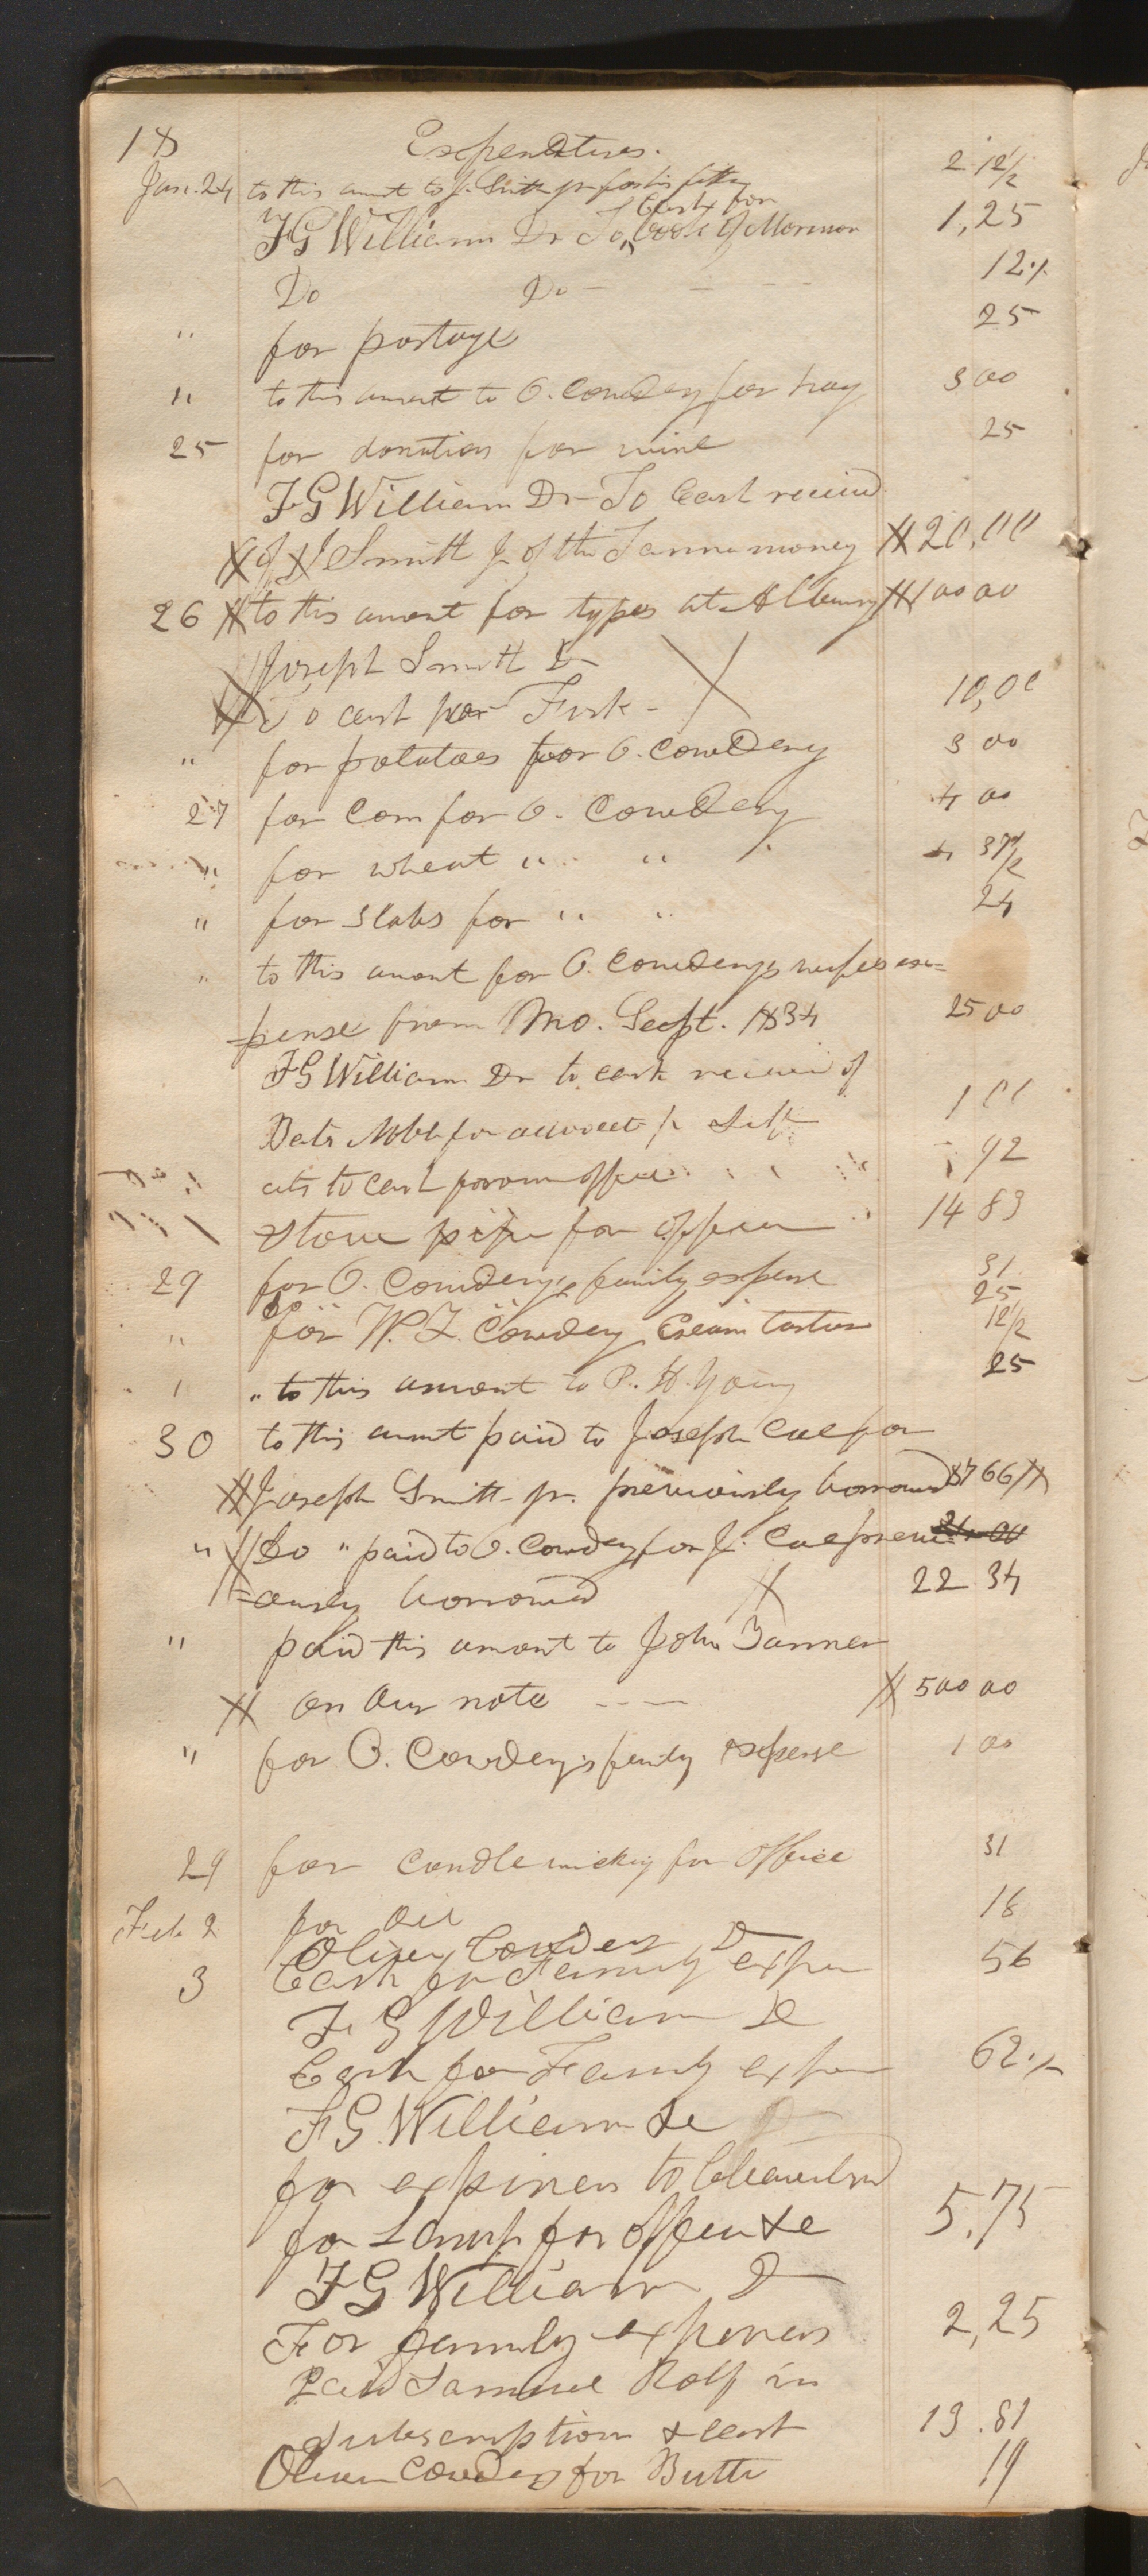 18 Expenditures.
Jan. 24 to this amt to J. Smith jr for his 2 12 1/2
Cash for
F G William Dr To book of Mormon 1,25
Do Do - - - - 12 ·/.
" for postage 25
" to this amount to O. Cowdery for hay 3 00
25 for donation for wine 25
F G William Dr To Cash receivd
of J Smith Jr of the Tanner money 20,00
26 to this amont for types at Albany 100 00
Joseph Smith Dr
To cash per Fisk - 10,00
" for potatoes for O. Cowdery 3 00
27 for Corn for O. Cowdery 4 00
" for wheat " " 4 37 1/2
" for slabs for " " 24
" to this amont for O. Cowderys wifes ex=
=pense from Mo. Sept. 1834 25 00
F G William Dr to cash receivd of
Noble for 1 00
to cash for office 92
stove pipe for office 14 83
29 for O. Cowdery's family expense 31
25
" for W. Cowdery Cream tartar 12 1/2
" to this amont to P. H. Young 25
30 to this amt paid to Joseph Coe for
Joseph Smith jr. previously borrowed 766
" Do " paid to O. Cowdery for J. Coe previ
=ously borrowed 22 34
" paid this amont to John Tanner
on our note - - - 500 00
" for O. Cowdery's family expense 1 00
29 for candle wicking for office 31
Feb 2 for Oil 18
Oliver Cowdery Dr
3 Cash for Family expen 56
F G William Dr
Cash for Family expen 62 ·/.
F G. William De
for expences to Cleaveland
for Lamp for office &c 5.75
F G William D
For family expences 2,25
Paid Samuel Rolf in
subscription & cash 13.81
Oliver Cowdery for Butter 19